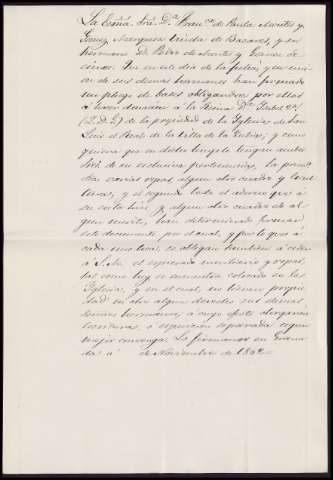 La Exma. Sra. Da. Franca. de Paula Montes y
Gomez Marquesa Viuda de Bazares, y su
hermano D. Pedro de Montes y Gomez de
cimos: Que en este dia de la fecha, y en union
de sus demas hermanos han firmado
un pliego de bases obligandose por ellas
á hacer donacion á la Reina Da. Isabel 2a.
(Q. D. G.) de la propiedad de la Iglesia de San
Luis el Real de la Villa de la Zubia, y como
quiera que en dicho templo tengan ambos
Sres. de su esclusiva pertenencia, la prime
ra varias ropas algun otro cuadro y escul
turas, y el segundo todo el adorno que á
su costa hizo, y algun otro cuadro de al
gun merito, han determinado formar
este documento por el cual, y por lo que á
cada uno toca, se obligan tambien á ceder
á S. M. el espresado mobiliario y ropas,
tal como hoy se encuentra colocado en la
Iglesia, y en el cual, no tienen propie
dad ni otro algun derecho sus demas
Señores hermanos, á cuyo efecto otorgarán
Escritura, ó espresion separada segun
mejor convenga. Lo firmamos en Grana
da á de Noviembre de 1862=